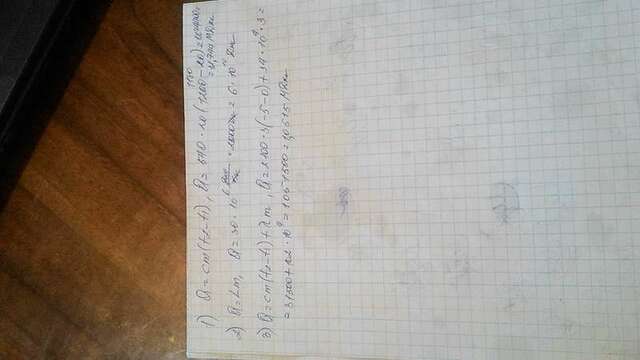 1) Q = cm(t₂-t₁), Q = 540 · 20 (1200 - 20) =
2) Q = Lm, Q = 30 · 10⁶ = 6 · 10¹⁰ Дж
3) Q = cm(t₂-t₁) + λm, Q = 2100 · 3(-5-0) + 34 · 10⁴ · 3 =
= 31500 + 102 · 10⁴ = 1051500 = 1,0515 МДж